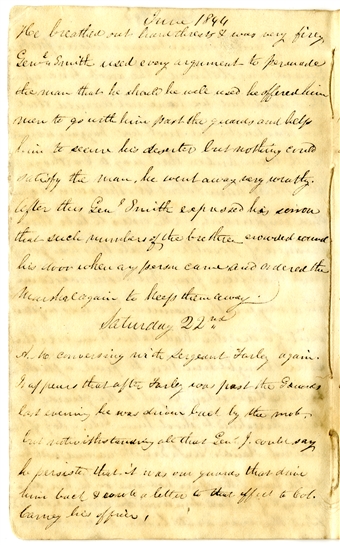 June 1844
He breathed out hard threats & was very firey
Genl Smith used every argument to persuade
the man that he should be well used he offered him
men to go with him past the guards and help
him to secure his deserter but nothing could
satisfy the man, he went away very wrathy.
After this Genl Smith expressed his sorrow
that such numbers of the brethren crowded round
his door when any person came and ordered the
Marshal again to keep them away.
Saturday 22nd
A.M. conversing with Sergeant Farley again.
It appears that after Farley was past the Guards
last evening he was driven back by the mob,
but notwithstanding all that Genl J. could say
he persists that it was our guards that driv
him back & wrote a letter to that effect to Col.
Carney his officer,